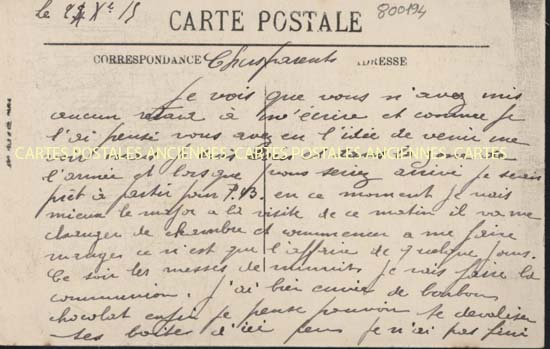 le 24 Xbre 15
800194
CARTE POSTALE
CORRESPONDANCE
ADRESSE
Chers parents
Je vois que vous n'avez mis
aucun retard à m'écrire et comme je
l'ai pensé vous avez eu l'idée de venir me
voir mais
CARTES POSTALES ANCIENNES CARTES POSTALES ANCIENNES CARTES POSTALES
l'armée et lorsque vous seriez arrivé je serais
prêt à partir pour en ce moment je vais
mieux le major a la visite de ce matin il va me
changer de chambre et commencer a me faire
manger ce n'est que l'affaire de quelque jours.
Ce soir les messes de minuits je vais faire la
communion. J'ai bien envie de bonbons
chocolat enfin je pense pouvoir te dévaliser
tes boites d'ici peu je n'ai pas fini